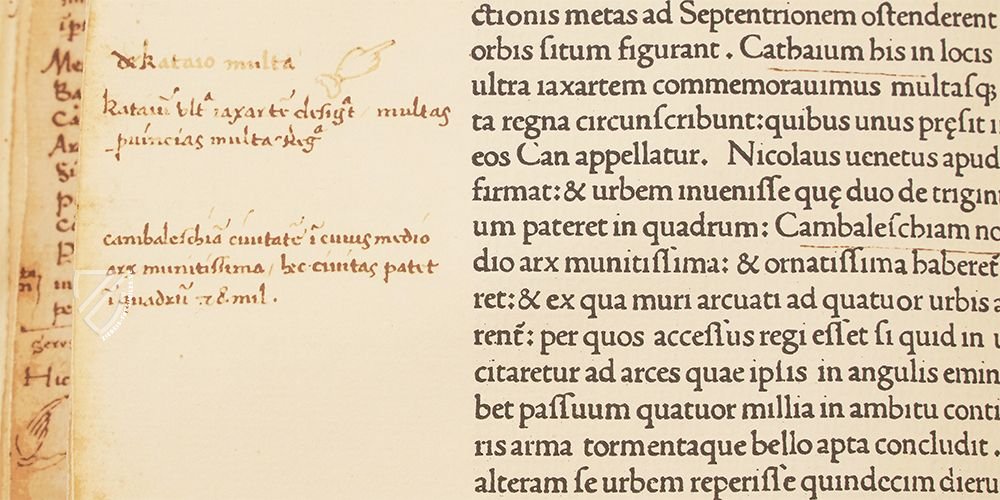 de kataio multa
kataiũ vltª iaxartẽ desigt multas
puincias multa Regª
cambaleschiã ciuitatẽ ĩ cuius medio
arx munitissima / hec ciuitas patet
ĩ quadrũ 28 mil.
ctionis metas ad Septentrionem oſtenderent
orbis ſitum figurant . Cathaium bis in locis
ultra iaxartem commemorauimus multaſqȝ
ta regna circunſcribunt: quibus unus pręſit i
eos Can appellatur. Nicolaus uenetus apud
firmat: & urbem inueniſſe quę duo de trigint
um pateret in quadrum: Cambaleſchiam no
dio arx munitiſſima: & ornatiſſima haberet
ret: & ex qua muri arcuati ad quatuor urbis a
rent̃: per quos acceſſus regi eſſet ſi quid in u
citaretur ad arces quae ipſis in angulis emin
bet paſſuum quatuor millia in ambitu conti
ris arma tormentaque bello apta concludit .
alteram ſe urbem reperiſſe quindecim dieru